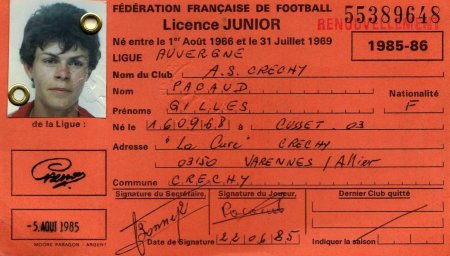 FÉDÉRATION FRANÇAISE DE FOOTBALL
Licence JUNIOR
55389648
RENOUVELLEMENT
Né entre le 1er Août 1966 et le 31 Juillet 1969
1985-86
LIGUE AUVERGNE
Nom du Club A.S. CRECHY
Nom PACAUD
Nationalité
Prénoms GILLES
F
de la Ligue :
Né le 16.09.68 à CUSSET. 03
Adresse "La Cure" CRECHY
03150 VARENNES/Allier
Commune CRECHY
Signature du Secrétaire,
Signature du Joueur,
Dernier Club quitté
-5. AOUT 1985
Date de Signature 22.06.85
Indiquer la saison
MOORE PARAGON - ARGENT